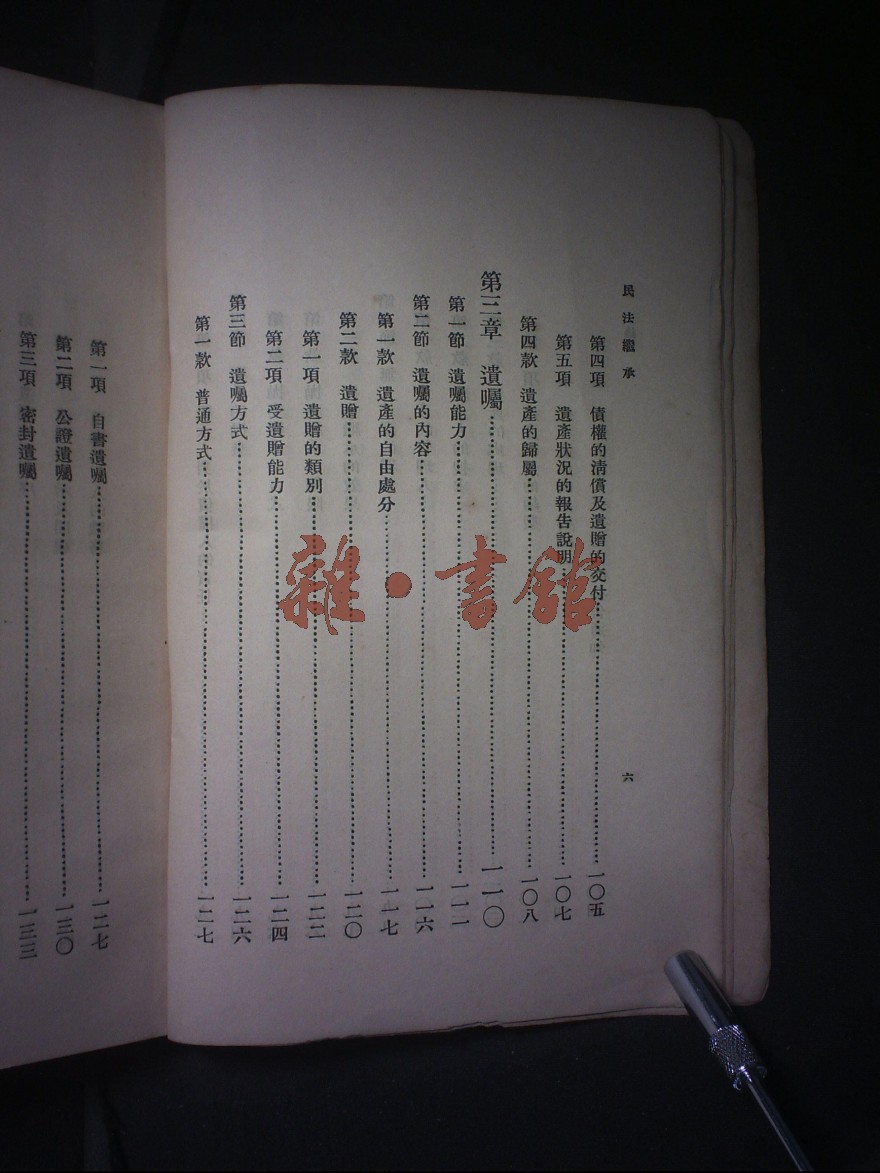 民法繼承
六
第四項 債權的清償及遺贈的交付……一〇五
第五項 遺產狀況的報告說明……一〇七
第四款 遺產的歸屬……一〇八
第三章 遺囑……一一〇
第一節 遺囑能力……一一一
第二節 遺囑的內容……一一六
第一款 遺產的自由處分……一一七
第二款 遺贈……一二〇
第一項 遺贈的類別……一二二
第二項 受遺贈能力……一二四
第三節 遺囑方式……一二六
第一款 普通方式……一二七
第一項 自書遺囑……一二七
第二項 公證遺囑……一三〇
第三項 密封遺囑……一三三
雜·書館